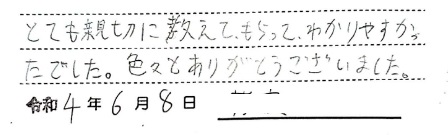 とても親切に教えて、もらって、わかりやすかっ
たでした。色々とありがとうございました。
令和4年6月8日